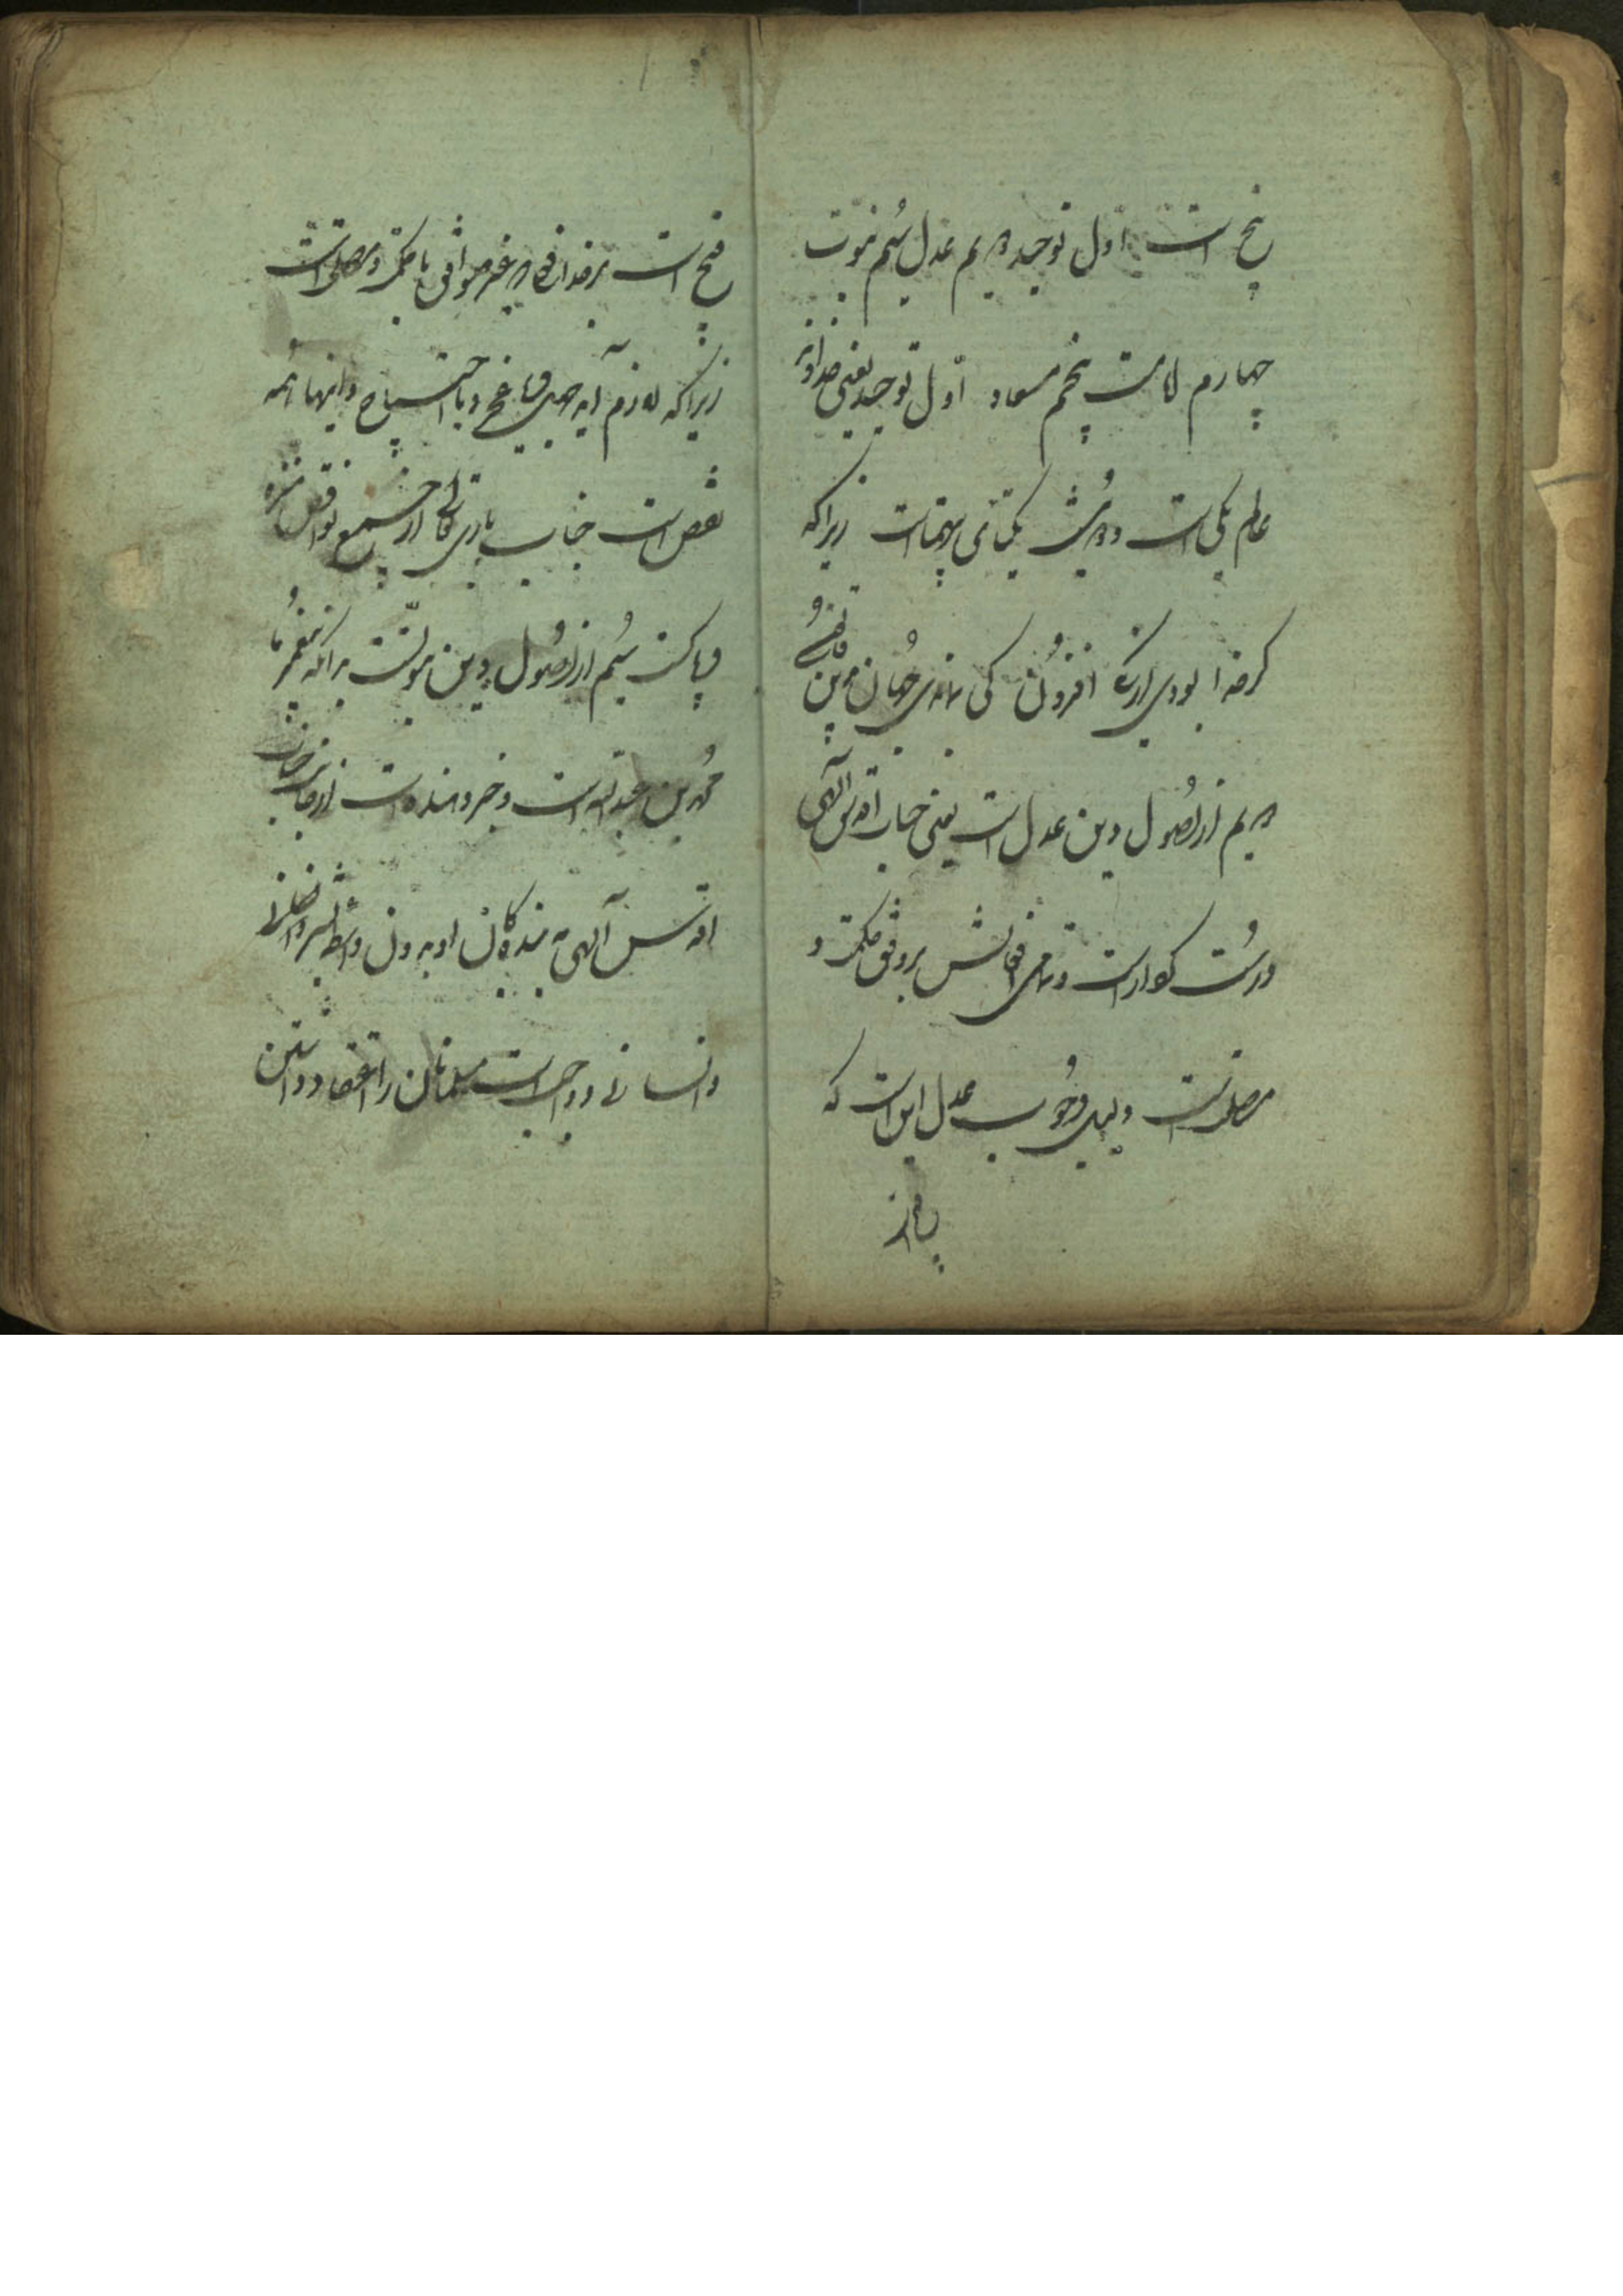 پنج است اول توحید دویم عدل سُیم نبوت
چهارم امامت پنجم معاد اول توحید یعنی خداوند
عالم یکی است و در یکتائی بیهمتاست زیرا که
گر خدا بودی از یک افزون کی بماندی جهان بدین قانون
دویم از اصُول دین عدل است یعنی جناب اقدس آلهی
درست کردار است و تمامی افعالش بر وفق حکمت و
مصلحت است و دلیل وجُوب عدل این است که
قبیح است بر خدا غیر موافق با حکمت و مصلحت است
زیرا که لازم آید جهل و یا احتیاج و اینها همه
نقص است جناب باری تعالی از جمیع نواقص منزه
و پاکست سُیم از اصُول دین نبوّتست بر آنکه پیغمبر ما
محمّد بن عبد الله است و خبر دهنده است از جانب جناب
اقدس آلهی به بندگان او بدون واسطه بشر
و انسانی و واجب است مسلمانان را اعتقاد داشتن